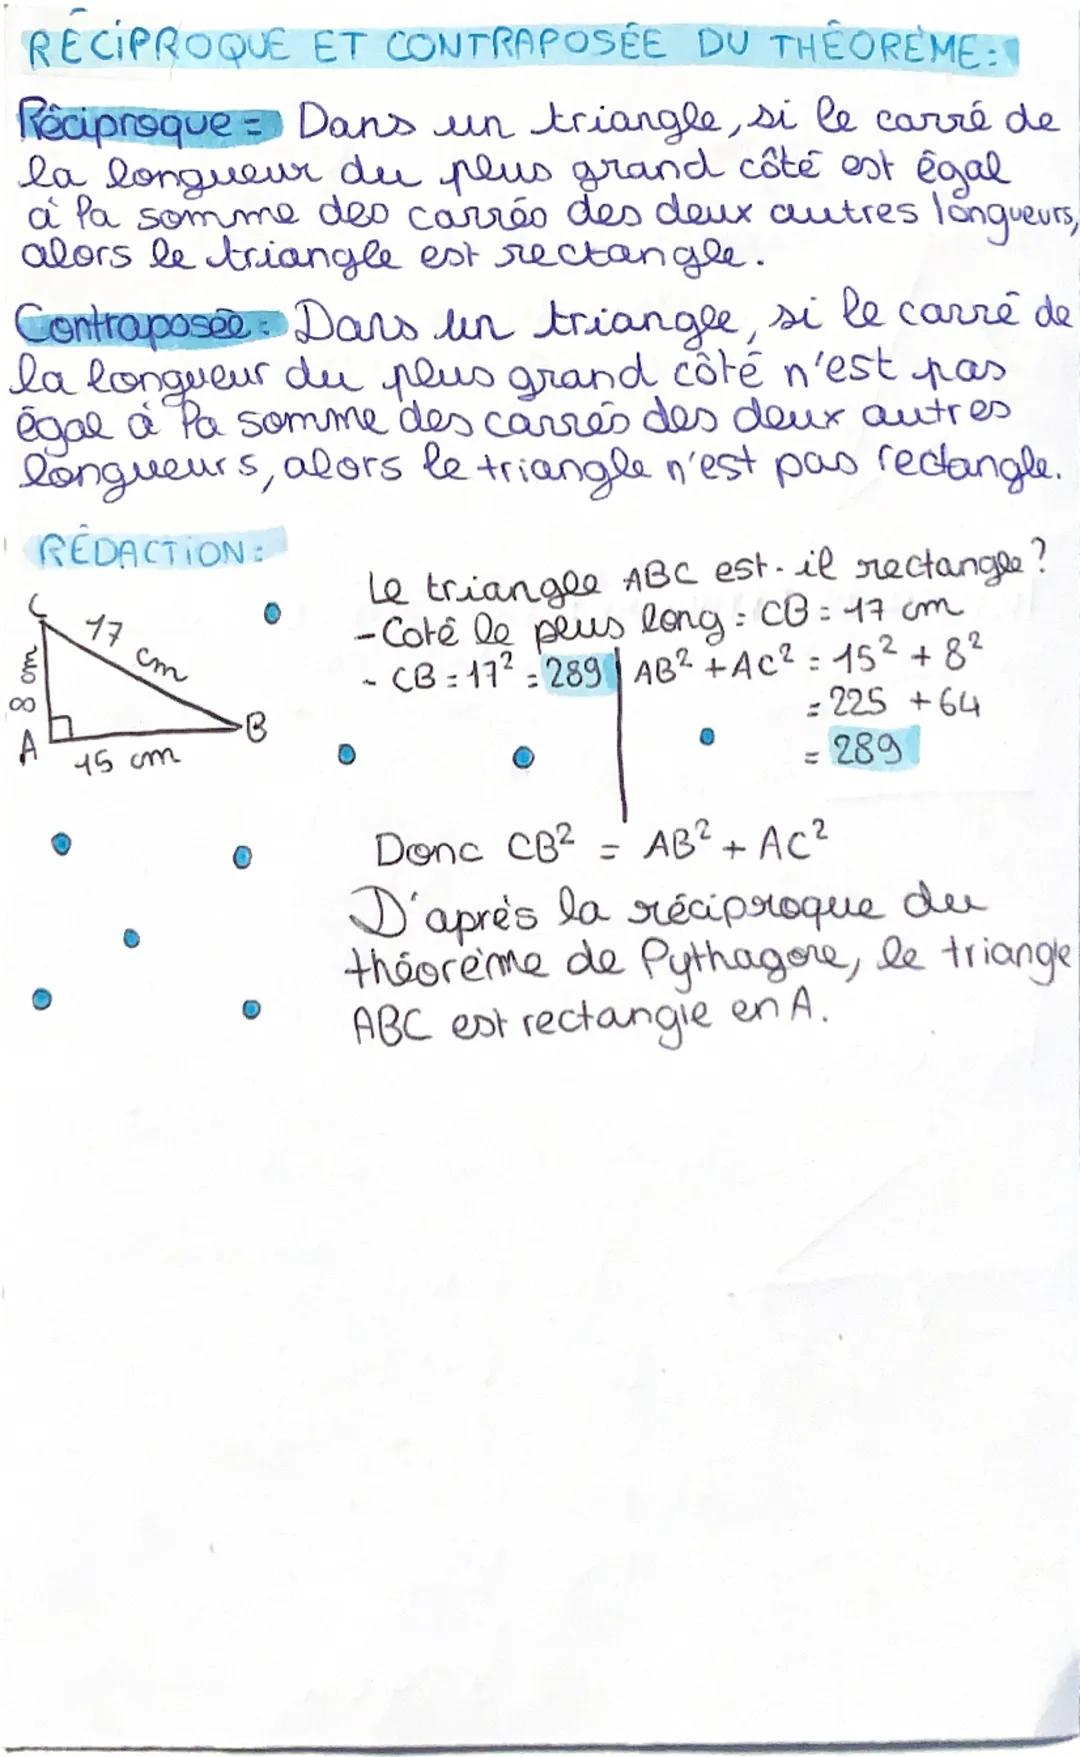 RÉCIPROQUE ET CONTRAPOSÉE DU THÉORÈME:
Réciproque = Dans un triangle, si le carré de
la longueur du plus grand côté est égal
à la somme des carrés des deux autres longueurs,
alors le triangle est rectangle.
Contraposée: Dans un triangle, si le carré de
la longueur du plus grand côté n'est pas
égal à la somme des carrés des deux autres
longueurs, alors le triangle n'est pas rectangle.
RÉDACTION:
C
17 cm
8 cm
A
B
15 cm
Le triangle ABC est-il rectangle?
-Coté le plus long: CB = 17 cm
- CB = 17² = 289 | AB² + AC² = 15² + 8²
= 225 + 64
= 289
Donc CB² = AB² + AC²
D'après la réciproque du
théorème de Pythagore, le triangle
ABC est rectangle en A.